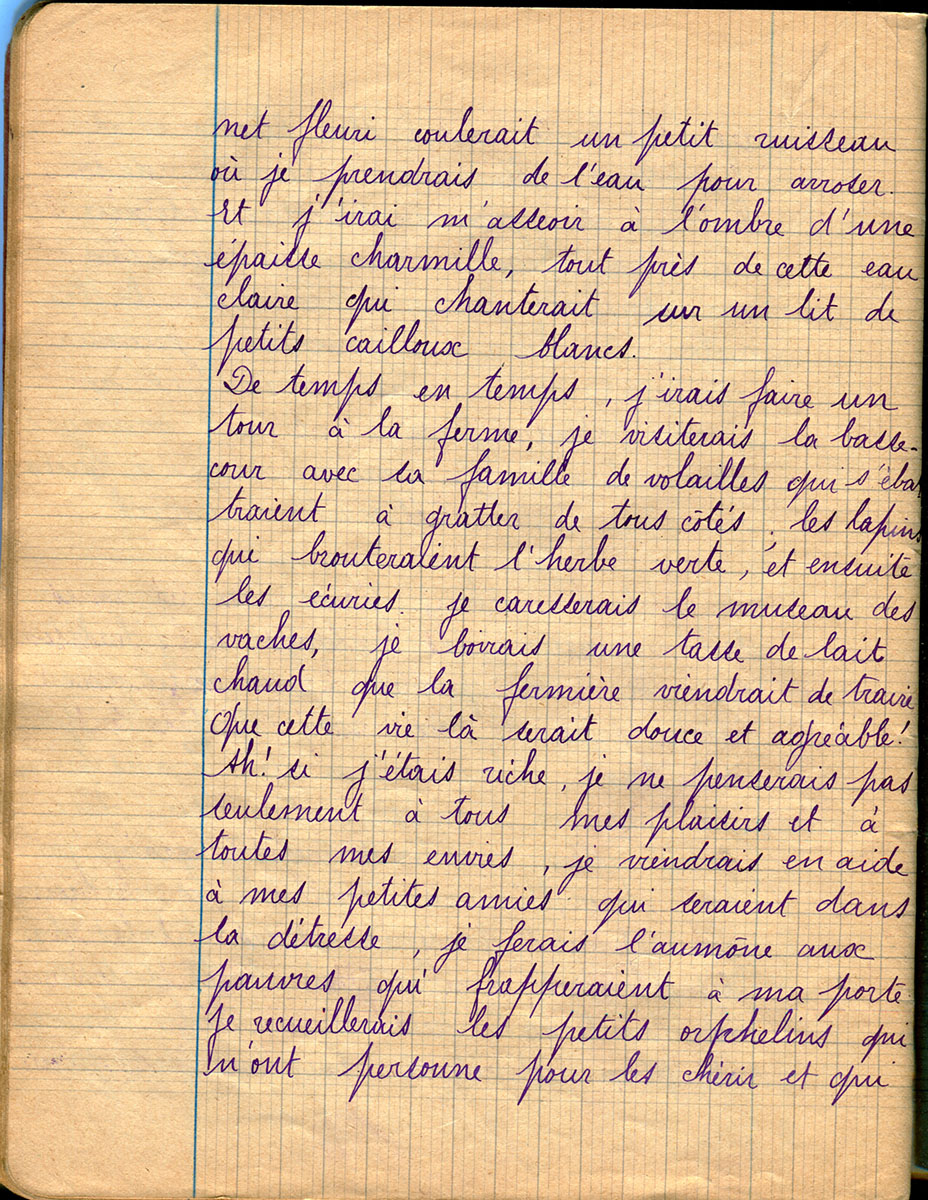 net fleuri coulerait un petit ruisseau
où je prendrais de l'eau pour arroser.
Et j'irai m'asseoir à l'ombre d'une
épaisse charmille, tout près de cette eau
claire qui chanterait sur un lit de
petits cailloux blancs.
De temps en temps, j'irais faire un
tour à la ferme, je visiterais la basse-
cour avec sa famille de volailles qui s'ébat
traient à gratter de tous côtés ; les lapins
qui brouteraient l'herbe verte, et ensuite
les écuries. je caresserais le museau des
vaches, je boirais une tasse de lait
chaud que la fermière viendrait de traire
Que cette vie là serait douce et agréable!
Ah! si j'étais riche, je ne penserais pas
seulement à tous mes plaisirs et à
toutes mes envies, je viendrais en aide
à mes petites amies qui seraient dans
la détresse, je ferais l'aumône aux
pauvres qui frapperaient à ma porte.
je recueillerais les petits orphelins qui
n'ont personne pour les chérir et qui